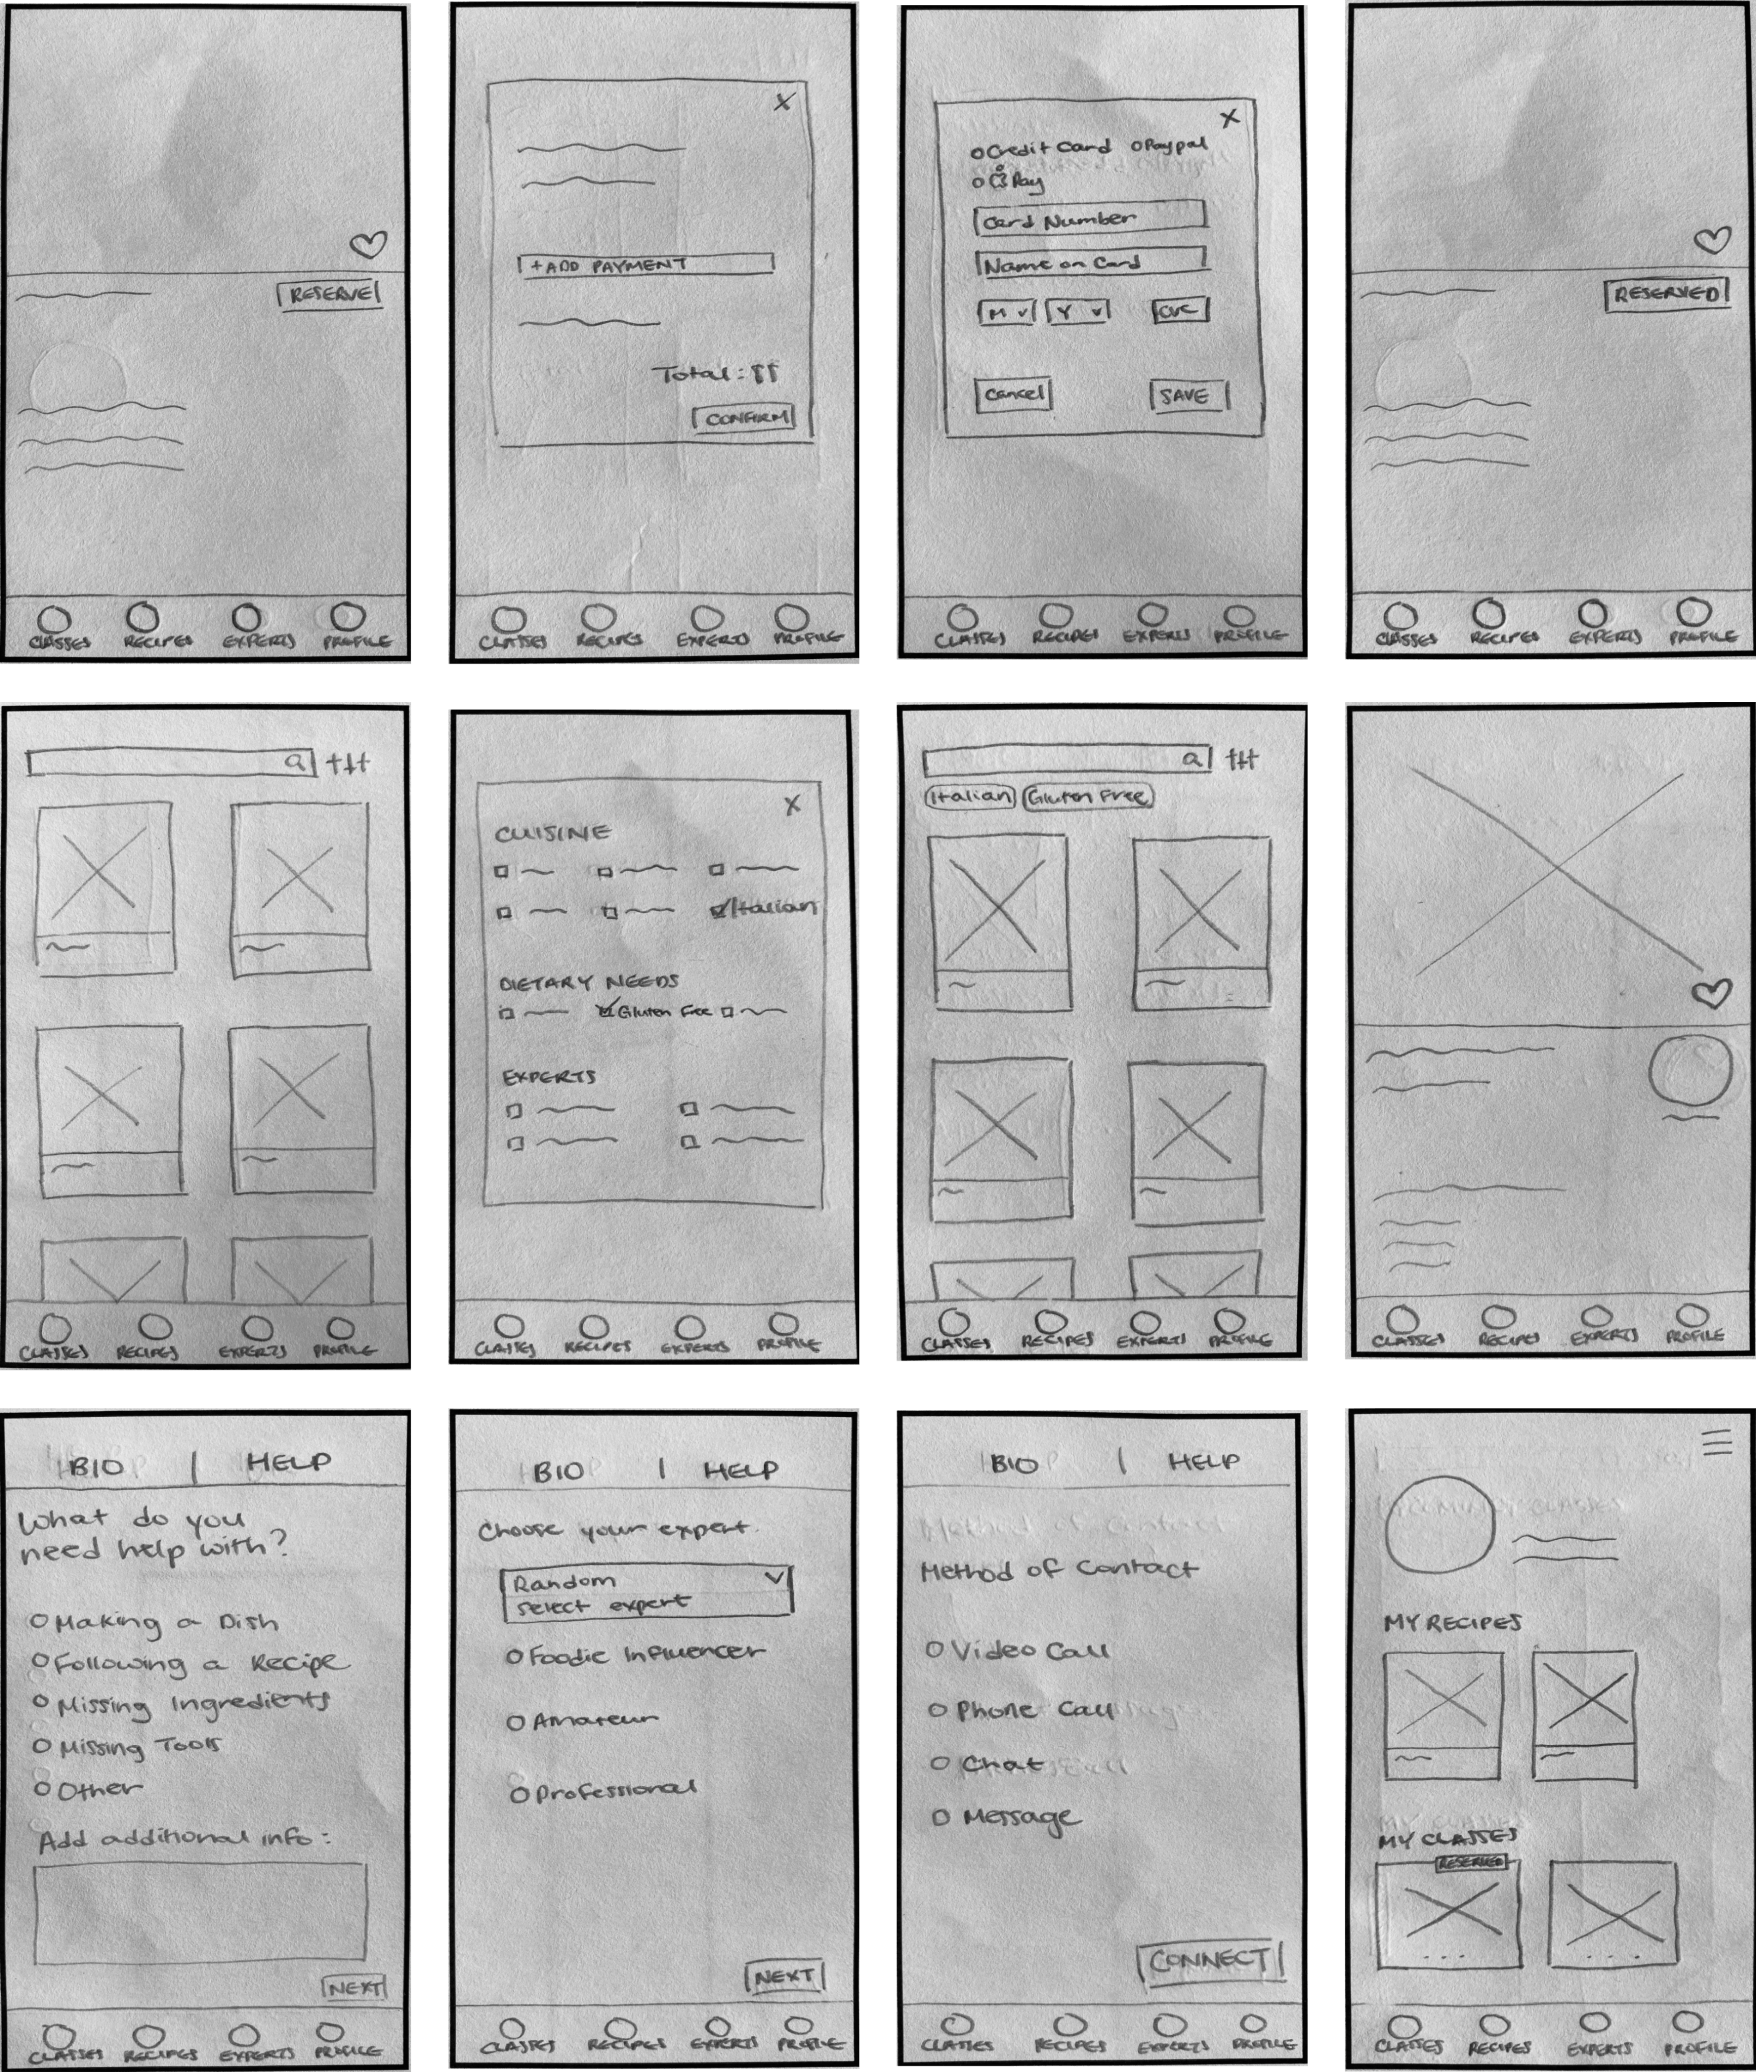 RESERVE
CLASSES RECIPES EXPERTS PROFILE
X
+ADD PAYMENT
Total:
CONFIRM
CLASSES RECIPES EXPERTS PROFILE
X
Credit Card Paypal
Pay
Card Number
Name on Card
M Y CVC
Cancel SAVE
CLASSES RECIPES EXPERTS PROFILE
RESERVED
CLASSES RECIPES EXPERTS PROFILE
CLASSES RECIPES EXPERTS PROFILE
X
CUISINE
Italian
DIETARY NEEDS
Gluten Free
EXPERTS
CLASSES RECIPES EXPERTS PROFILE
Italian Gluten Free
CLASSES RECIPES EXPERTS PROFILE
CLASSES RECIPES EXPERTS PROFILE
BIO | HELP
What do you
need help with?
Making a Dish
Following a Recipe
Missing Ingredients
Missing Tools
Other
Add additional info:
NEXT
CLASSES RECIPES EXPERTS PROFILE
BIO | HELP
Choose your expert.
Random
Select expert
Foodie Influencer
Amateur
Professional
NEXT
CLASSES RECIPES EXPERTS PROFILE
BIO | HELP
Method of Contact
Video Call
Phone Call
Chat
Message
CONNECT
CLASSES RECIPES EXPERTS PROFILE
MY RECIPES
MY CLASSES
RESERVED
CLASSES RECIPES EXPERTS PROFILE